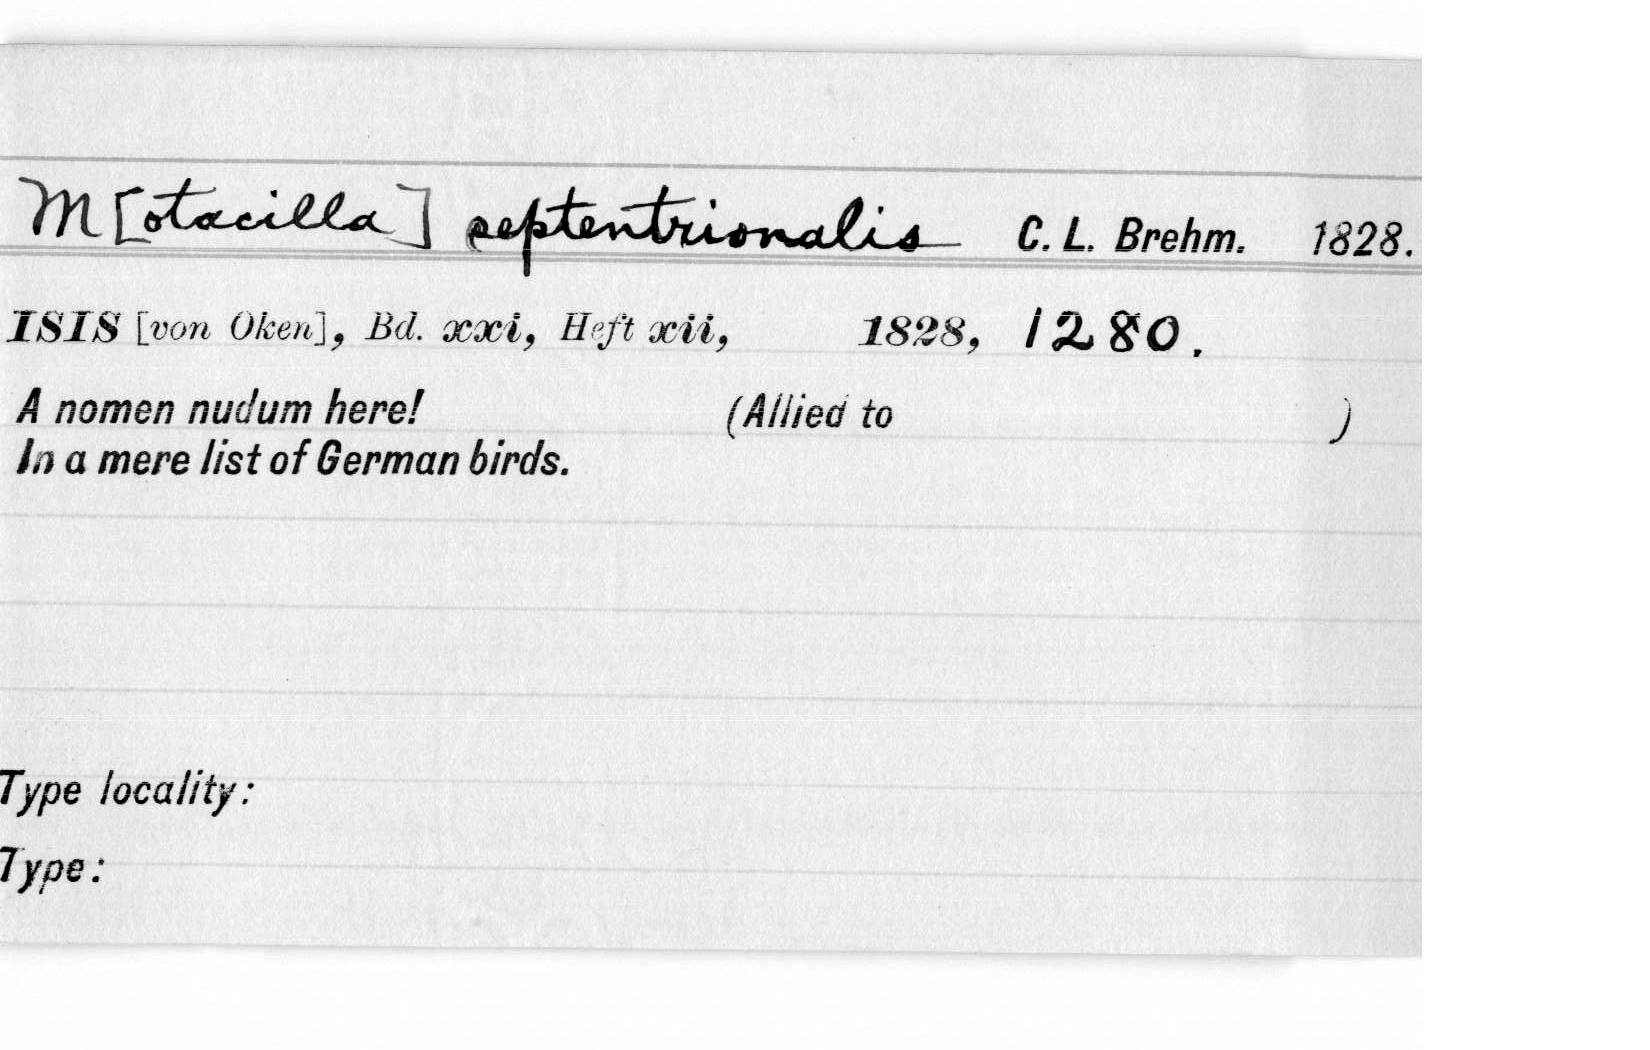 M[otacilla] septentrionalis C. L. Brehm. 1828.
ISIS [von Oken], Bd. xxi, Heft xii, 1828, 1280.
A nomen nudum here! (Allied to )
In a mere list of German birds.
Type locality:
Type: